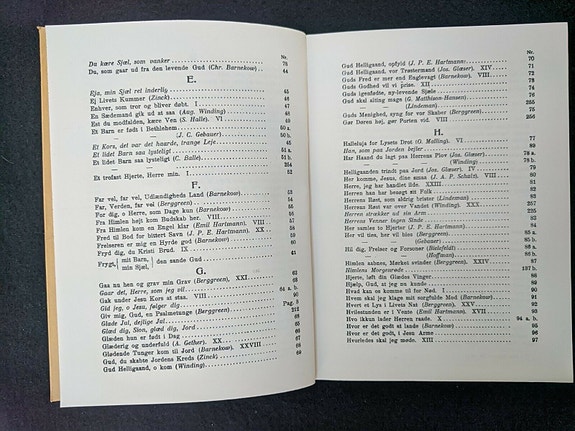 Nr.
Du kære Sjæl, som vanker 78
Du, som gaar ud fra den levende Gud (Chr. Barnekow) 44
E.
Eja, min Sjæl ret inderlig
Ej Livets Kummer (Zinck).
Enhver, som tror og bliver døbt. I
En Sædemand gik ud at saa (Aug. Winding)
Et dut modfalden, kære Ven (S. Halle). VI
Et Barn er født i Bethlehem 50 a.
— (J. C. Gebauer) 50 b.
Et Kors, det var det haarde, trange Leje 51
Et lidet Barn saa lysteligt 52 a.
— (C. Balle)
Et trofast Hjerte, Herre min. I 254
F.
Far vel, far vel, Udlændigheds Land (Barnekow)
Far, Verden, far vel (Berggreen)
For dig, o Herre, som Dage kun (Barnekow)
Fra Himlen højt kom Budskab her. VIII
Fra Himlen kom en Engel klar (Emil Hartmann). VIII
Fred til Bod for bittert Savn (J. P. E. Hartmann)
Frelseren er mig en Hyrde god (Barnekow)
Fryd dig, du Kristi Brud. IX
Frygt, mit Barn, min Sjæl, den sande Gud
G.
Gaa nu hen og grav min Grav (Berggreen). XXI
Gaar det, Herre, som jeg vil
Gak under Jesu Kors at staa. VIII
Gid jeg, o Jesu, følger dig
Giv mig, Gud, en Psalmetunge (Berggreen)
Glade Jul, dejlige Jul
Glæd dig, Sion, glæd dig, Jord
Glæden hun er født i Dag
Glæderig og underfuld (A. Gether). XX
Glødende Tunger kom til Jord (Barnekow). XXVIII
Gud, du skabte Jordens Kreds (Zinck)
Gud Helligaand, o kom (Winding) 69
Nr.
Gud Helligaand, opfyld (J. P. E. Hartmann) 70
Gud Helligaand, vor Trøstermand (Jos. Glæser). XIV 71
Guds Fred er mer end Englevagt (Barnekow). VIII 72
Guds Godhed vil vi prise. XII 73
Guds igenfødte, ny-levende Sjæle 74
Gud skal alting mage (G. Matthison-Hansen) 255
— (Lindeman) 75
Guds Menighed, syng for vor Skaber (Berggreen) 76
Gør Døren høj, gør Porten vid. VIII 256
H.
Halleluja for Lysets Drot (O. Malling). VI 77
Han, som paa Jorden bejler 89
Har Haand du lagt paa Herrens Plov (Jos. Glæser) 78 a.
— (Winding) 78 b.
Helligaanden trindt paa Jord (Jos. Glæser). VI 79
Her komme, Jesus, dine smaa (J. A. P. Schultz). VIII
Herre, jeg har handlet ilde. XXIII
Herren han har besøgt sit Folk
Herrens Røst, som aldrig brister (Lindeman)
Herrens Røst var over Vandet (Winding). XXX
Herren strækker ud sin Arm
Herrens Venner ingen Sinde
Her samles to Hjerter (J. P. E. Hartmann)
Her vil ties, her vil bies (Berggreen) 85 a.
— (Gebauer)
Hil dig, Frelser og Forsoner (Bielefeldt) 86 a.
— (Hoffman) 86 b.
Himlen aabnes, Mørket svinder (Berggreen). XXIV 87
Himlens Morgenrøde 137 b.
Hjerte, løft din Glædes Vinger 88
Hjælp, Gud, at jeg nu kunde 89
Hvad kan os komme til for Nød. I 90
Hvem skal jeg klage mit sorgfulde Mod (Barnekow) 91
Hvert et Lys i Livets Nat (Berggreen). XXV 92
Hvilestunden er i Vente (Emil Hartmann). VII 93
Hvo ikkun lader Herren raade. X 94 a. b.
Hvor er det godt at lande (Barnekow) 95
Hvor er det godt, i Jesu Arme 96
Hvorledes skal jeg møde. XIII 97